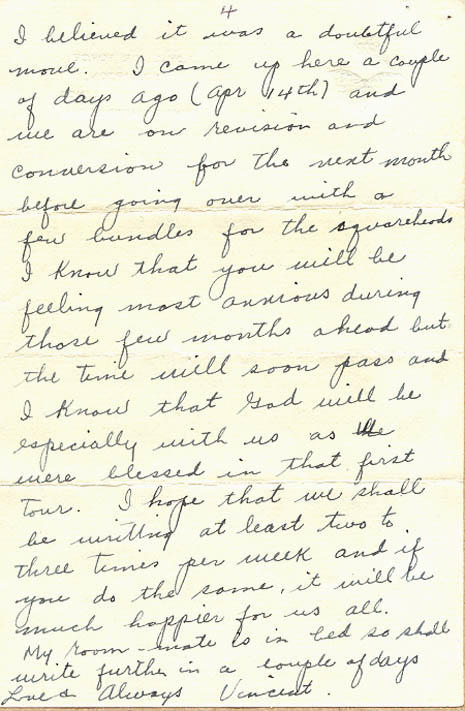 4
I believed it was a doubtful
move. I came up here a couple
of days ago (Apr 14th) and
we are on revision and
conversion for the next month
before going over with a
few bundles for the squareheads
I know that you will be
feeling most anxious during
those few months ahead but
the time will soon pass and
I know that God will be
especially with us as we
were blessed in that first
tour. I hope that we shall
be writting at least two to
three times per week and if
you do the same, it will be
much happier for us all.
My room-mate is in bed so shall
write further in a couple of days
Love & Always Vincent.